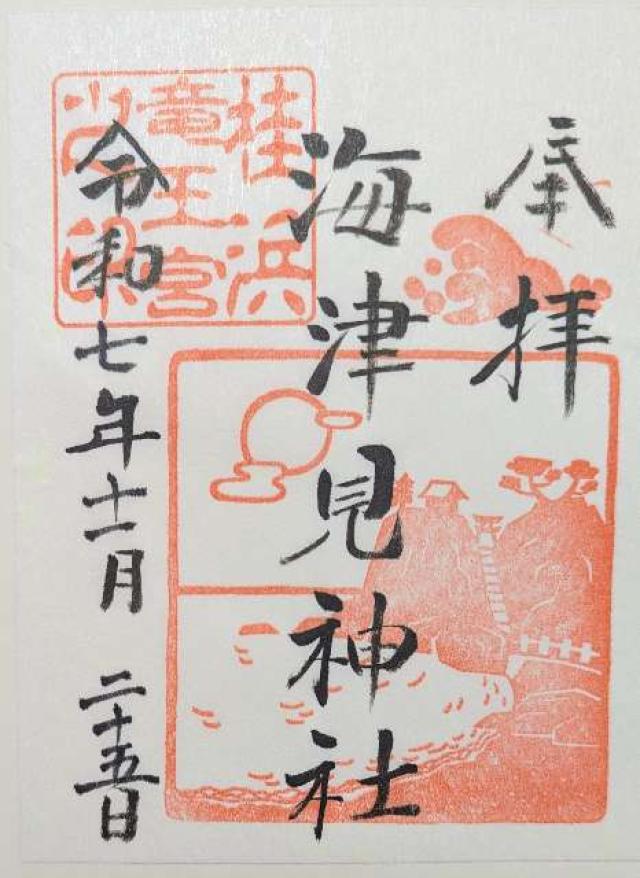 奉拝
海津見神社
令和七年十一月 二十五日
桂浜
竜王宮